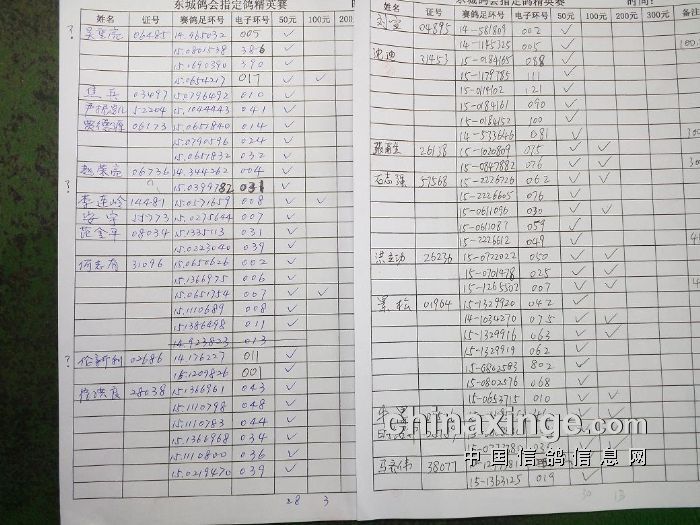 东城鸽会指定鸽精英赛
姓名 证号 赛鸽足环号 电子环号 50元 100元 200
06485 14.465032 005 ✓
15.0801538 386 ✓
15.1690390 390 ✓
15.0654217 017 ✓ ✓
焦兵 03497 15.0796492 010 ✓
52204 15.1044443 041 ✓
06173 15.0657840 014 ✓
15.0790596 024 ✓
15.0657832 032 ✓
? 赵荣亮 06736 14.344262 004 ✓
15.0399782 031 ✓
? 李连岭 14481 15.0571659 008 ✓ ✓
安宁 15773 15.0275644 007 ✓
范金平 08034 15.1335113 031 ✓
15.0223040 039 ✓
何志有 31096 15.0650626 002 ✓
15.1366975 006 ✓
15.0651754 007 ✓ ✓
15.1110689 008 ✓
15.1386498 011 ✓
14.923823 013
? 02686 14.176227 011 ✓
15.1209826 001 ✓
徐洪良 28038 15.1366961 043 ✓
15.1110798 048 ✓
15.1110783 044 ✓
15.1366968 034 ✓
15.1110800 036 ✓
15.0219470 039 ✓
28 3
东城鸽会指定鸽精英赛 时间:
姓名 证号 赛鸽足环号 电子环号 50元 100元 200元 300元 备注
04895 14-561809 002 ✓
14-1145325 005 ✓
沈迪 31453 15-0184165 088 ✓
15-1179785 111 ✓
15-0114102 121 ✓
15-0184161 090 ✓
15-0184152 100 ✓
14-533646 081 ✓
26138 15-1020809 035 ✓ ✓
15-0847882 026 ✓ ✓
石志强 57568 15-2226726 062 ✓ ✓
15-2226605 076 ✓
15-0611096 030 ✓ ✓
15-0611087 059 ✓
15-2226612 049 ✓
洪主功 26236 15-0722022 050 ✓ ✓
15-0701478 025 ✓ ✓
15-1265302 007 ✓ ✓
景松 01964 15-1329920 042 ✓
14-1034270 075 ✓ ✓
15-1329916 063 ✓ ✓
15-1329919 062 ✓
15-0802583 802 ✓
15-0802576 068 ✓
15-0653715 010 ✓ ✓
chinaxinge.com
中国信鸽信息网
38077
15-1363125 019 ✓ ✓
30 13